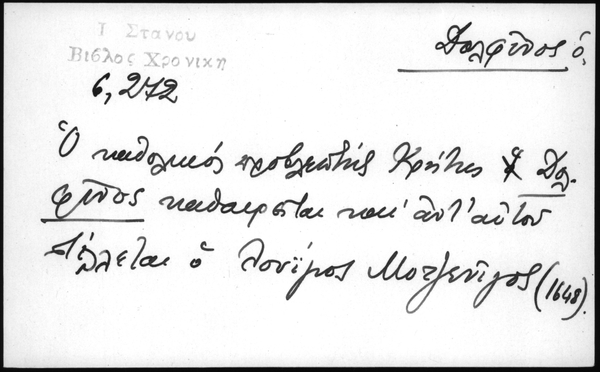 Ι Στανου
Βιβλος Χρονικη
Δολφῖνος ὁ.
ϛ, 272
Ὁ καθολικός προβλεπτής Κρήτης Δολ-
φῖνος καθαιρεῖται και ἀντ' αὐτοῦ
στέλλεται ὁ Λουίγιος Μοτζενῖγος (1648).